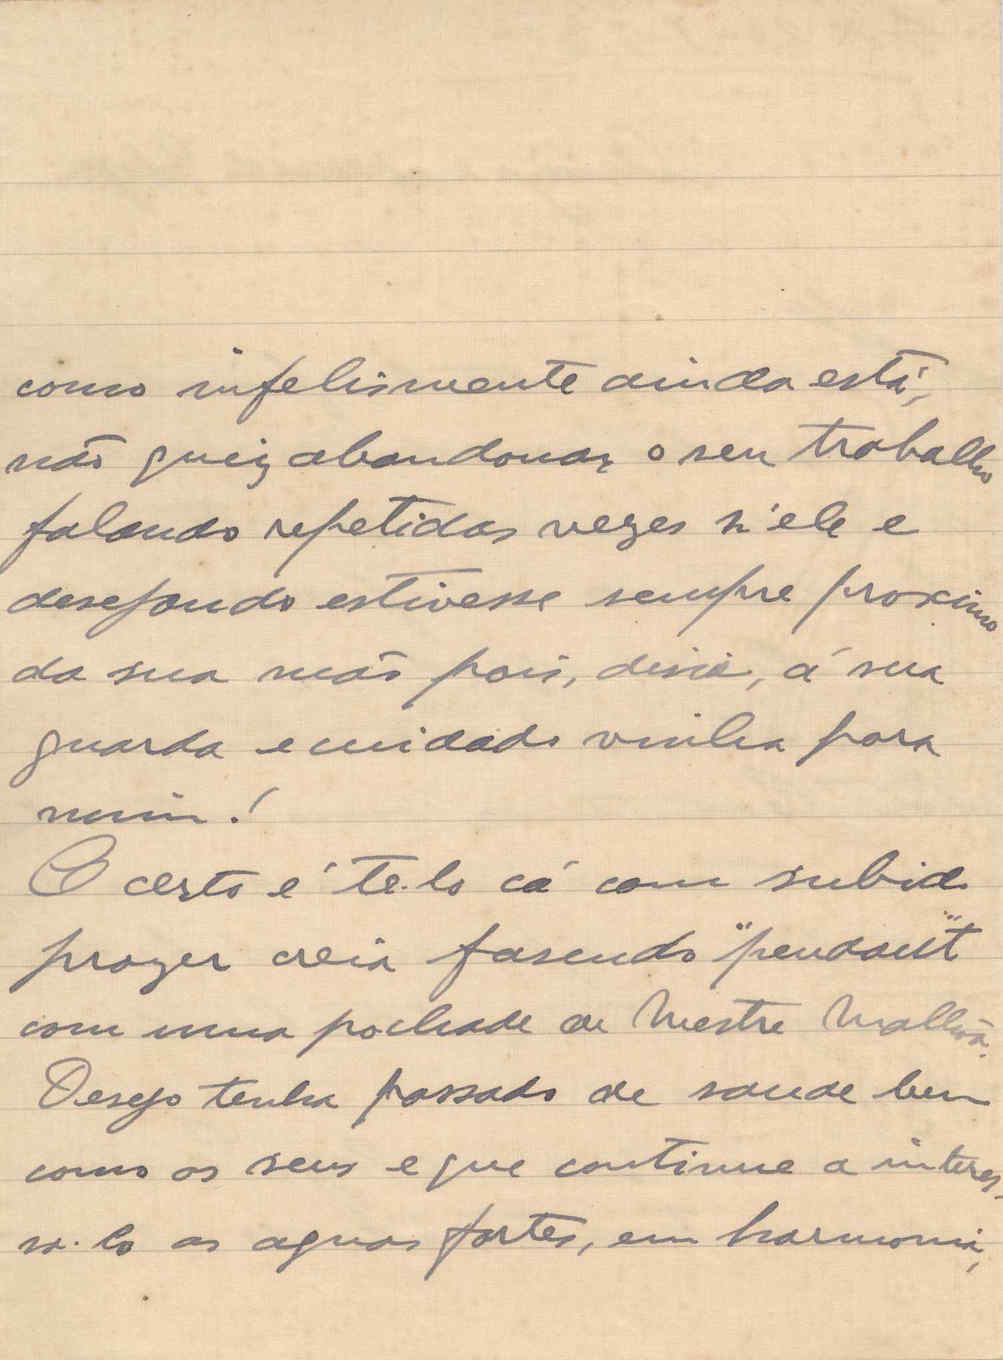 como infelismente ainda está,
não quiz abandonar o seu trabalho
falando repetidas vezes n'ele e
desejando estivesse sempre proximo
da sua mão pois, disia, á sua
guarda e cuidado vinha para
mim!
O certo é te-lo cá com subido
prazer creia fasendo "pendant"
com uma pochade de Mestre Malhôa.
Desejo tenha passado de saude bem
como os seus e que continue a interes-
sa-lo as aguas fortes, em harmonia,